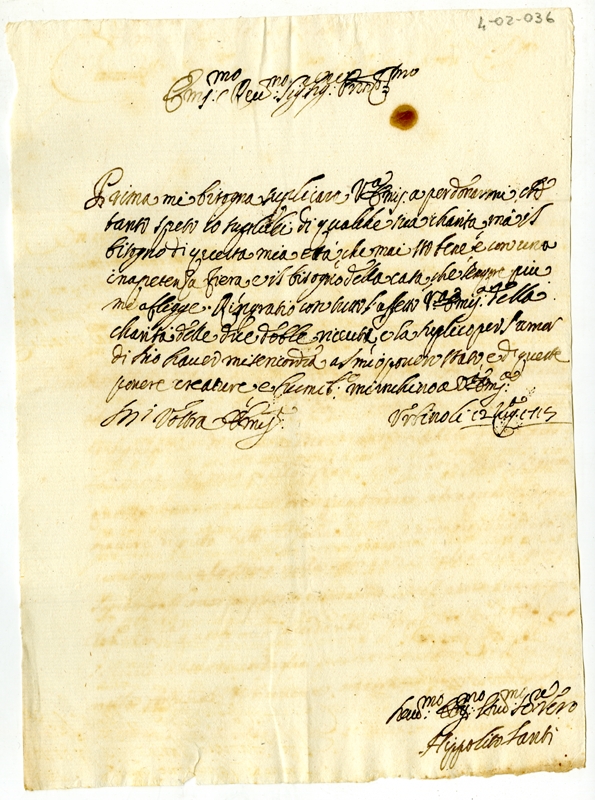 4-02-036
Em.mo e Rev.mo Sig.r Sig.r Pron.
Prima mi bisogna suplicare V.a Em.a a perdonarmi che
tanto spesso lo suplichi di qualche sua charita ma il
bisogno di questa mia età che mai sto bene e con una
inapetenza fiera e il bisogno della casa che sempre piu
mi aflegge. Ringratio con tutto l'affetto V.ra Em.a della
charita delle dice doble riceuta e la suplico per l'amor
di Dio haver misericordia al mio povero stato e di queste
povere creature e humil.te m'inchino a V.ra Em.a
Di Vostra Em.
hum.mo
Hyppolito Santi